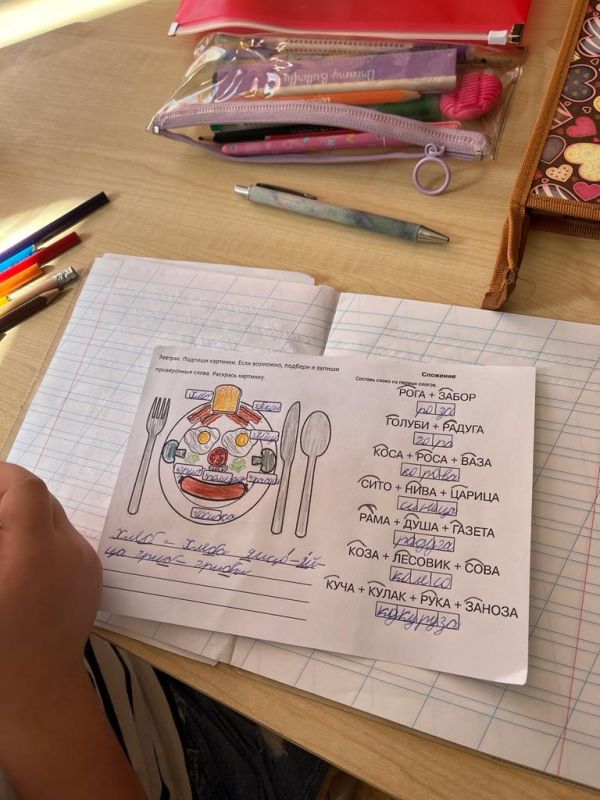 Dreamy Butterfly
Завтрак. Подпиши картинки. Если возможно, подбери и запиши
проверочные слова. Раскрась картинку.
сосиска
хлеб – хлеба яйцо – яй-
ца гриб – грибы
Сложение
Составь слово из первых слогов.
РОГА + ЗАБОР
роза
ГОЛУБИ + РАДУГА
гора
КОСА + РОСА + ВАЗА
корова
СИТО + НИВА + ЦАРИЦА
синица
РАМА + ДУША + ГАЗЕТА
радуга
КОЗА + ЛЕСОВИК + СОВА
колесо
КУЧА + КУЛАК + РУКА + ЗАНОЗА
кукуруза